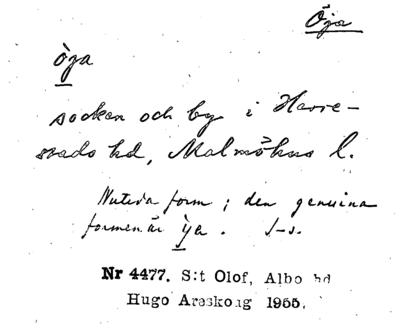 Öja
òja
socken och by i Harre-
svads hd, Malmöhus l.
Nutida form; den genuina
formen är ỳa. J-s.
Nr 4477. S:t Olof, Albo hd
Hugo Areskoug 1955.